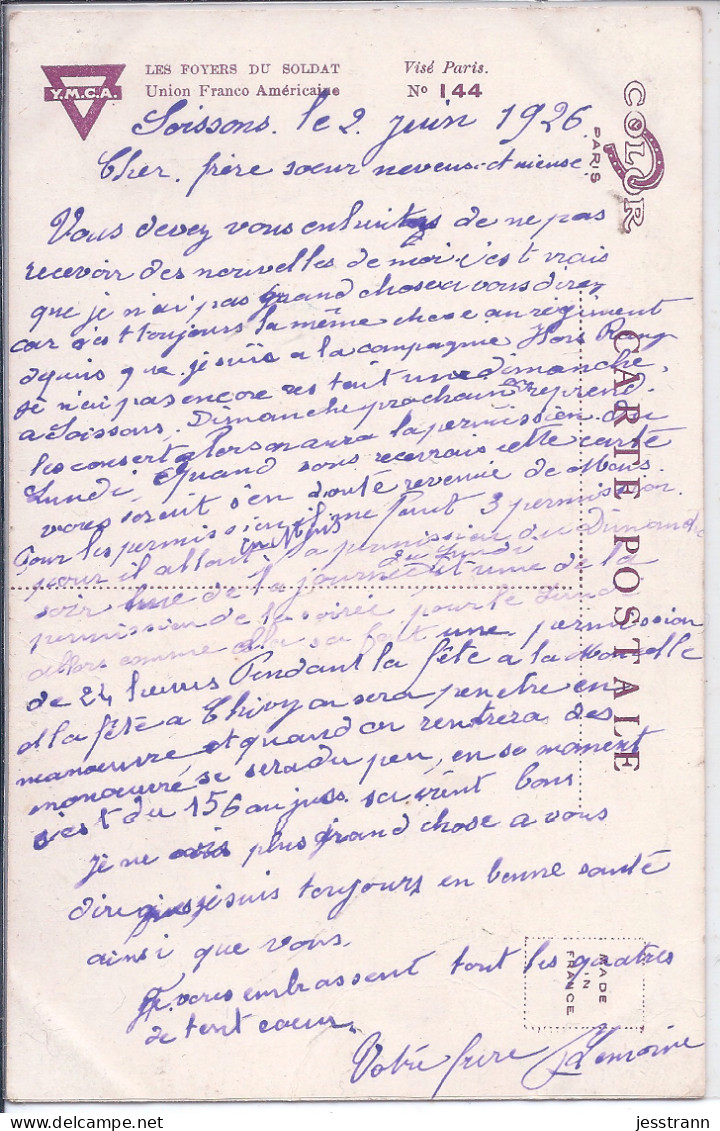 Y.M.C.A.
LES FOYERS DU SOLDAT
Union Franco Américaine
Visé Paris.
No 144
COLOR
PARIS
CARTE POSTALE
MADE IN FRANCE
Soissons. le 2 juin 1926.
Cher. frère sœur neveus et nieuse.
Vous devez vous de ne pas
recevoir des nouvelles de moi c'est vrais
que je n'ai pas grand chose a vous direz
car c'est toujours la même chose au régiment
depuis que je suis a la compagnie Hors Rang
je n'ai pas encore res tait une dimanche,
a Soissons, Dimanche prochain on reprend
les consert alors on aura la permission du
Lundi. Quand vous recevrais cette carte
vous serait s'en doute revenue de Mons.
Pour les permission il me faut 3 permission
pour il allait la permission du Dimanche
soir une de la journée du Lundi et une de la
permission de la soirée pour le Lundi
allors comme cela sa fait une permission
de 24 heures Pendant la fête a la Moncelle
et la fête a Chivy on sera peu etre en
manœuvre et quand on rentrera des
manœuvre se sera du peu, en se moment
c'est du 156 au jus sa vient bons
Je ne vois plus grand chose a vous
dire que je suis toujours en bonne santé
ainsi que vous.
Je vous embrassent tout les quatres
de tout cœur.
Votre frère Lemoine
jesstrann